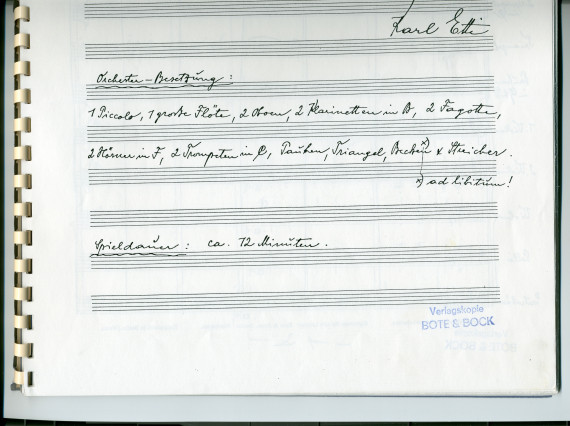 Karl Etti
Orchester-Besetzung :
1 Piccolo, 1 große Flöte, 2 Oboen, 2 Klarinetten in B, 2 Fagotte,
2 Hörner in F, 2 Trompeten in C, Pauken, Triangel, Becken x) & Streicher.
x) ad libitum!
Spieldauer : ca. 12 Minuten.
Verlagskopie
BOTE & BOCK